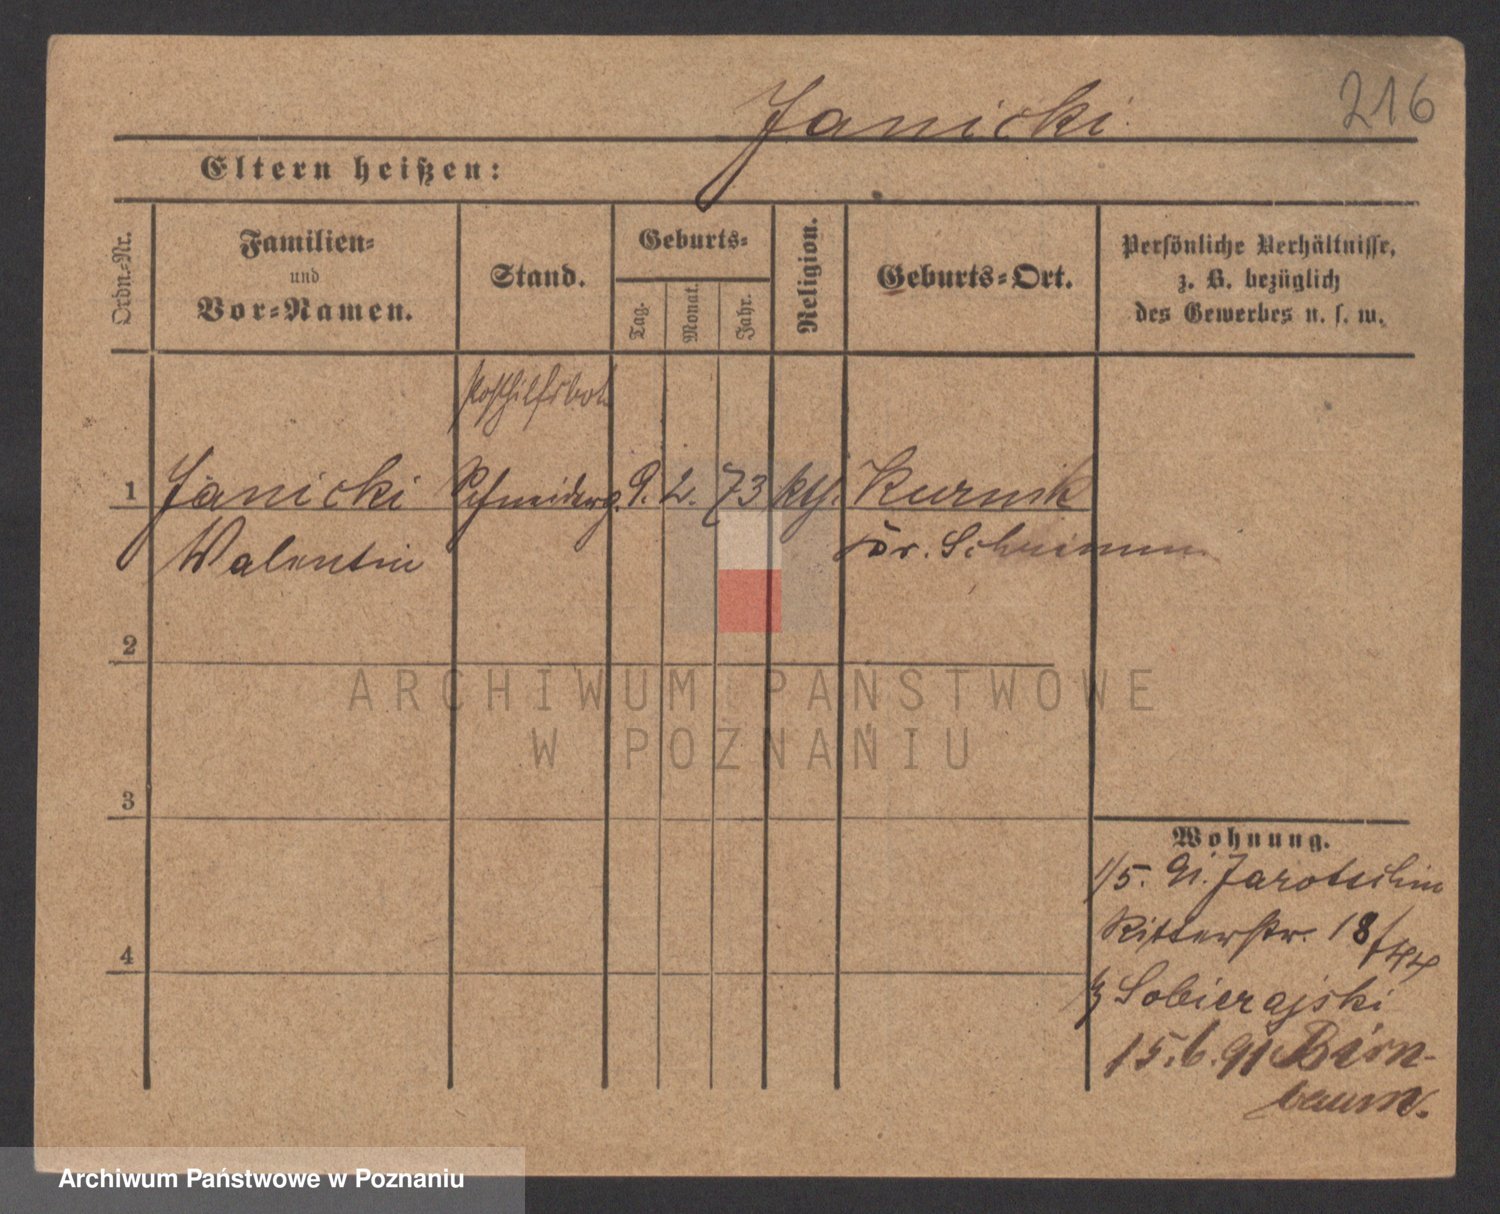 Janicki
216
Eltern heißen:
Ordn.=Nr.
Familien=
und
Vor=Namen.
Stand.
Geburts=
Tag.
Monat.
Jahr.
Religion.
Geburts=Ort.
Persönliche Verhältnisse,
z. B. bezüglich
des Gewerbes u. s. w.
Posthilfsbot.
1 Janicki Schneiderg. 9. 2. 73 kth. Kurnik
Valentin Kr. Schrimm
2
3
4
Wohnung.
1/5. 91. Jarotschin
Ritterstr. 18/
b/ Sobierajski
15.6.91 Birn-
baum.
ARCHIWUM PAŃSTWOWE
W POZNANIU
Archiwum Państwowe w Poznaniu